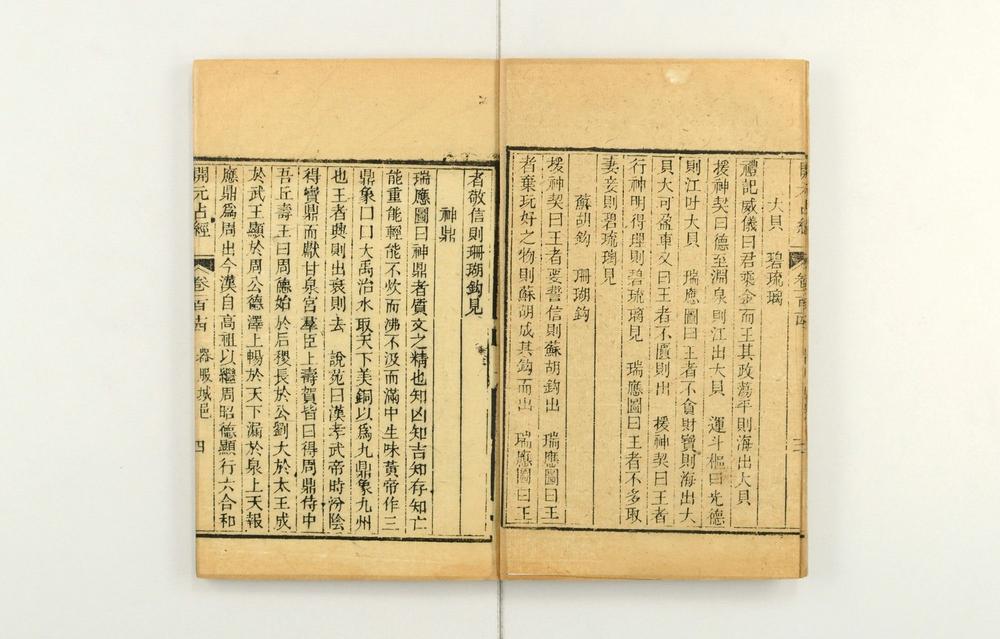 開元占經
大貝　碧琉璃
禮記威儀曰君乘金而王其政蕩平則海出大貝
援神契曰德至淵泉則江出大貝　運斗樞曰光德
則江吐大貝　瑞應圖曰王者不貪財寶則海出大
貝大可盈車又曰王者不匱則出　援神契曰王者
行神明得理則碧琉璃見　瑞應圖曰王者不多取
妻妾則碧琉璃見
蘇胡鈎　珊瑚鈎
援神契曰王者要誓信則蘇胡鈎出　瑞應圖曰王
者棄玩好之物則蘇胡成其鈎而出　瑞應圖曰王
者敬信則珊瑚鈎見
神鼎
瑞應圖曰神鼎者質文之精也知凶知吉知存知亡
能重能輕能不炊而沸不汲而滿中生味黃帝作三
鼎象口口大禹治水取天下美銅以爲九鼎象九州
也王者興則出衰則去　說苑曰漢孝武帝時汾陰
得寶鼎而獻甘泉宮羣臣上壽賀皆曰得周鼎侍中
吾丘壽王曰周德始於后稷長於公劉大於太王成
於武王顯於周公德澤上暢於天下漏於泉上天報
應鼎爲周出今漢自高祖以繼周昭德顯行六合和
開元占經　卷一百十四　器服城邑　四